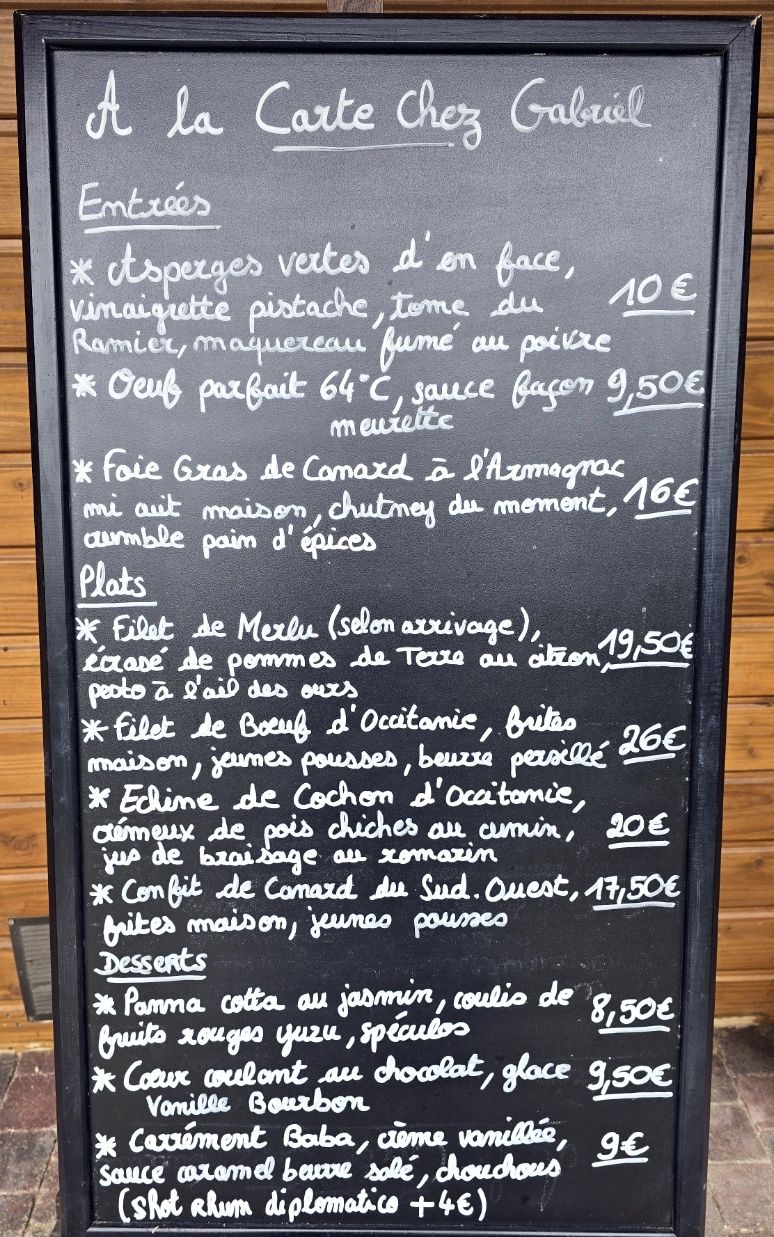 A la Carte Chez Gabriel
Entrées
* Asperges vertes d'en face,
vinaigrette pistache, tome du 10€
Ramier, maquereau fumé au poivre
* Oeuf parfait 64°C, sauce façon 9,50€
meurette
* Foie Gras de Canard à l'Armagnac
mi cuit maison, chutney du moment, 16€
crumble pain d'épices
Plats
* Filet de Merlu (selon arrivage),
écrasé de pommes de Terre au citron, 19,50€
pesto à l'ail des ours
* Filet de Boeuf d'Occitanie, frites
maison, jeunes pousses, beurre persillé 26€
* Echine de Cochon d'Occitanie,
crémeux de pois chiches au cumin, 20€
jus de braisage au romarin
* Confit de Canard du Sud.Ouest, 17,50€
frites maison, jeunes pousses
Desserts
* Panna cotta au jasmin, coulis de 8,50€
fruits rouges yuzu, spéculos
* Cœur coulant au chocolat, glace 9,50€
Vanille Bourbon
* Carrément Baba, crème vanillée, 9€
sauce caramel beurre salé, chouchous
(Shot Rhum diplomatico +4€)